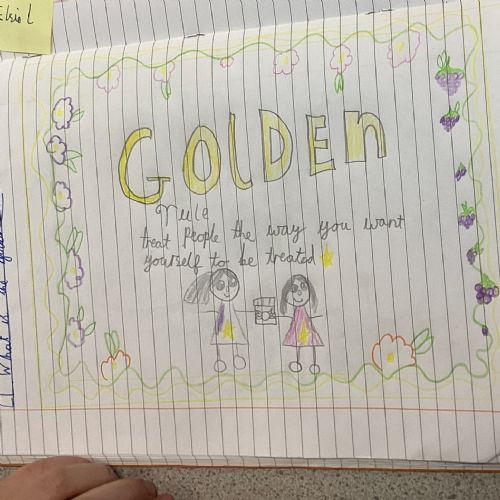 Elsie L
GOLDEN
rule
treat people the way you want
yourself to be treated
What is the golden